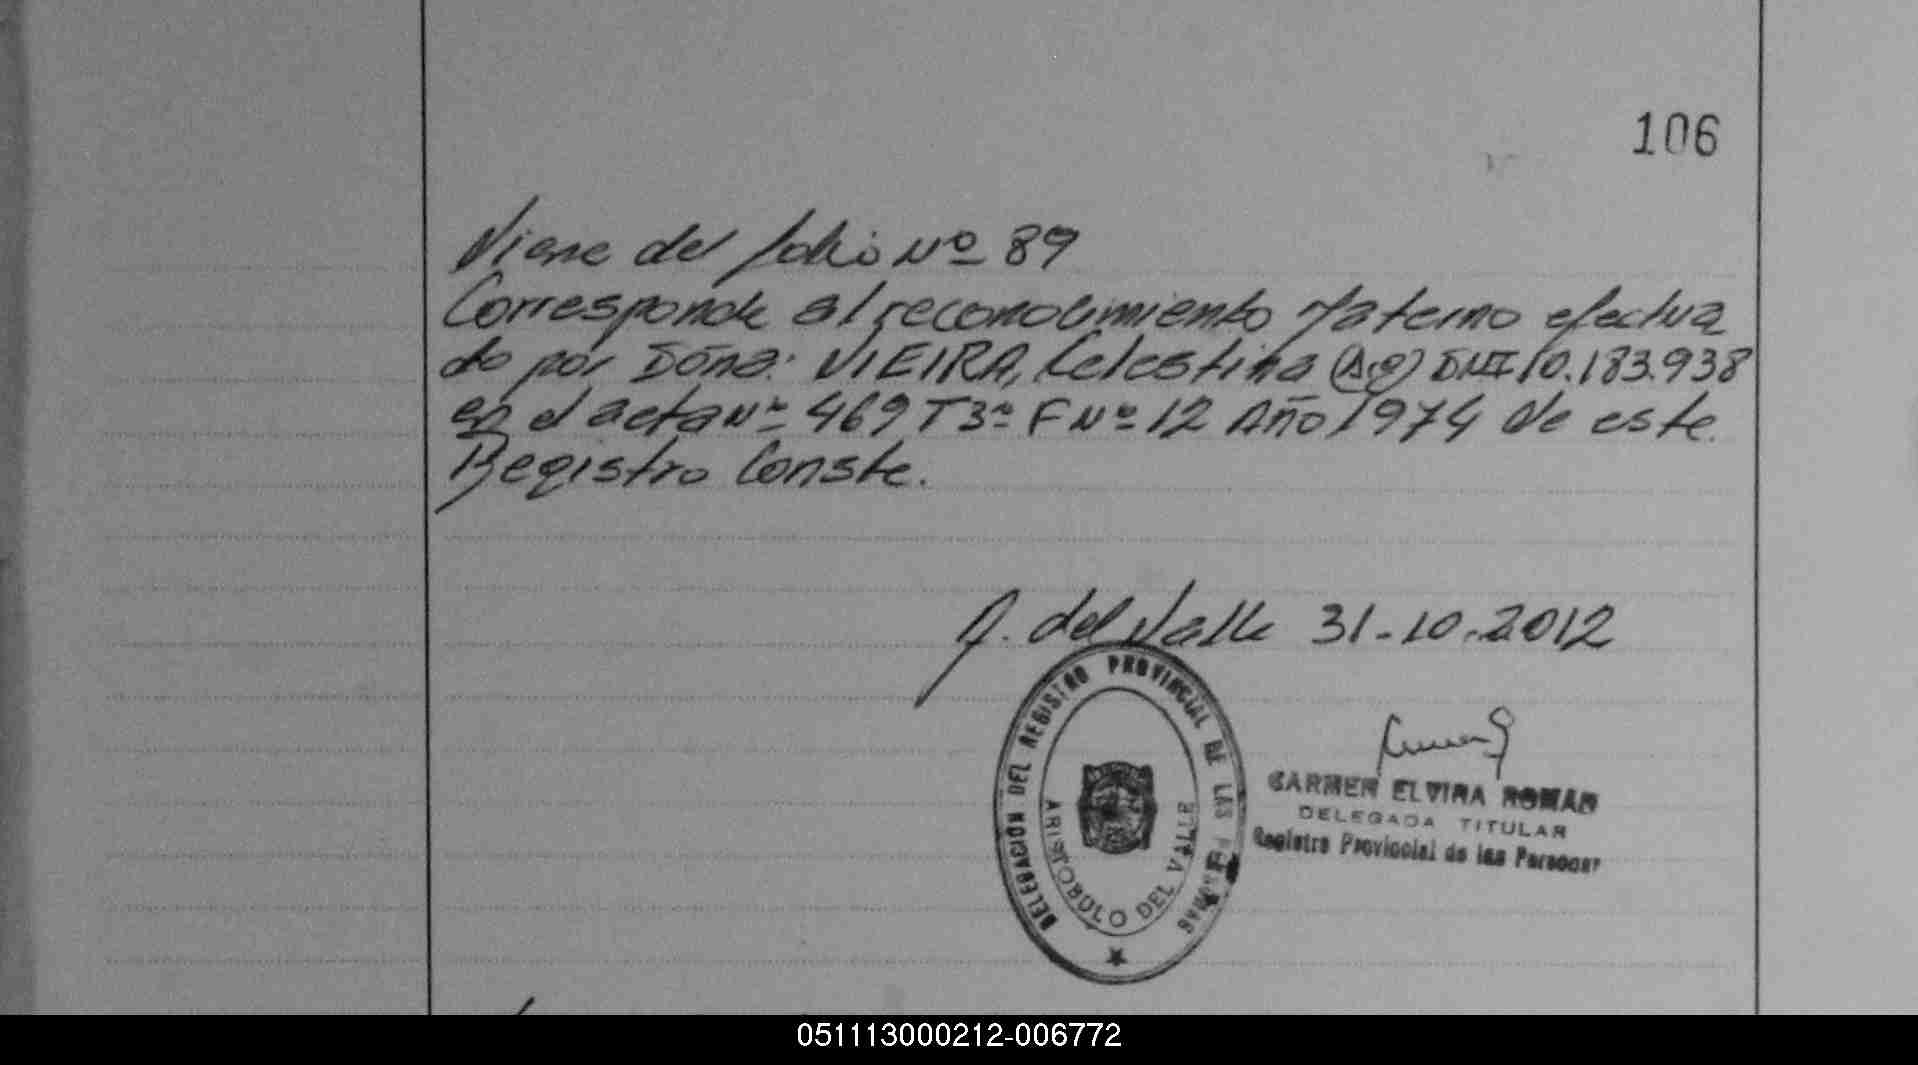 106
Viene del folio Nº 89
Corresponde al reconocimiento Materno efectua
do por Dóña: VIEIRA, Celestina (Ag) DNI 10.183.938
en el acta Nº 469 T3º F Nº 12 Año 1974 de este
Registro Conste.
A. del Valle 31-10-2012
DELEGACION DEL REGISTRO PROVINCIAL DE LAS PERSONAS
ARISTOBULO DEL VALLE
CARMEN ELVIRA ROMAN
DELEGADA TITULAR
Registro Provincial de las Personas
051113000212-006772